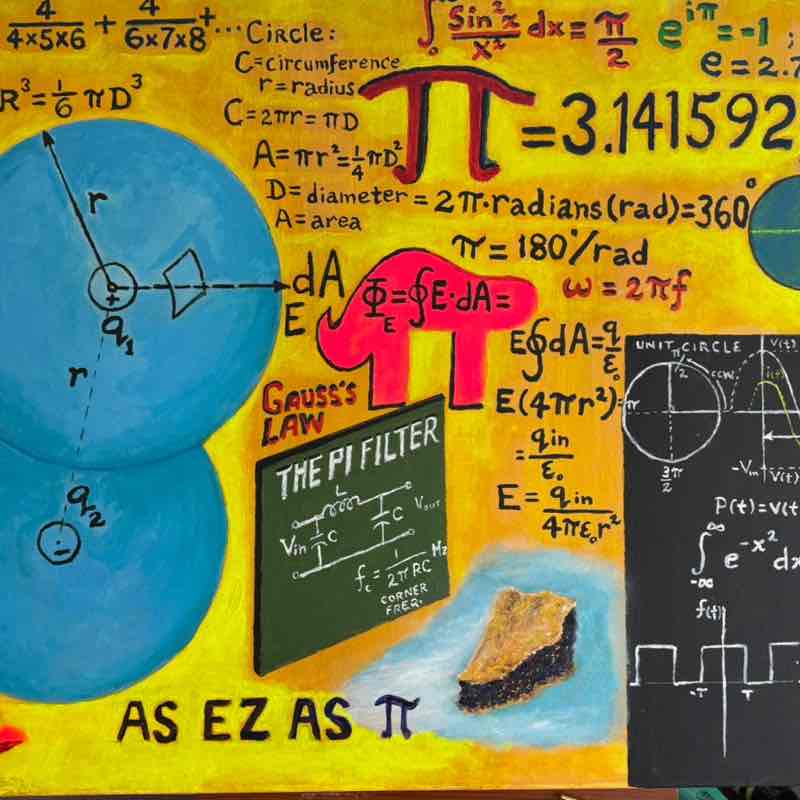 4/(4×5×6) + 4/(6×7×8) + ...
R³ = 1/6 πD³
Circle:
C = circumference
r = radius
C = 2πr = πD
A = πr² = 1/4 πD²
D = diameter
A = area
∫₀^∞ Sin²x/x² dx = π/2
e^iπ = -1;
e = 2.7
π = 3.141592
= 2π·radians (rad) = 360°
π = 180°/rad
ω = 2πf
r
+
q₁
dA
E
r
q₂
-
Φ_E = ∮E·dA =
E∮dA = q/ε₀
E(4πr²) =
= qin/ε₀
E = qin/4πε₀r²
GAUSS'S
LAW
THE PI FILTER
L
Vin
C
C
Vout
f_c = 1/2πRC Hz
CORNER
FREQ.
AS EZ AS π
UNIT CIRCLE
π/2
CCW
π
3/2 π
V(t)
i(t)
P(t) = V(t
∫_-∞^∞ e^-x² dx
f(t)
-T
T